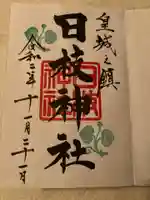 皇城之鎮
日枝神社
令和二年十一月二十一日